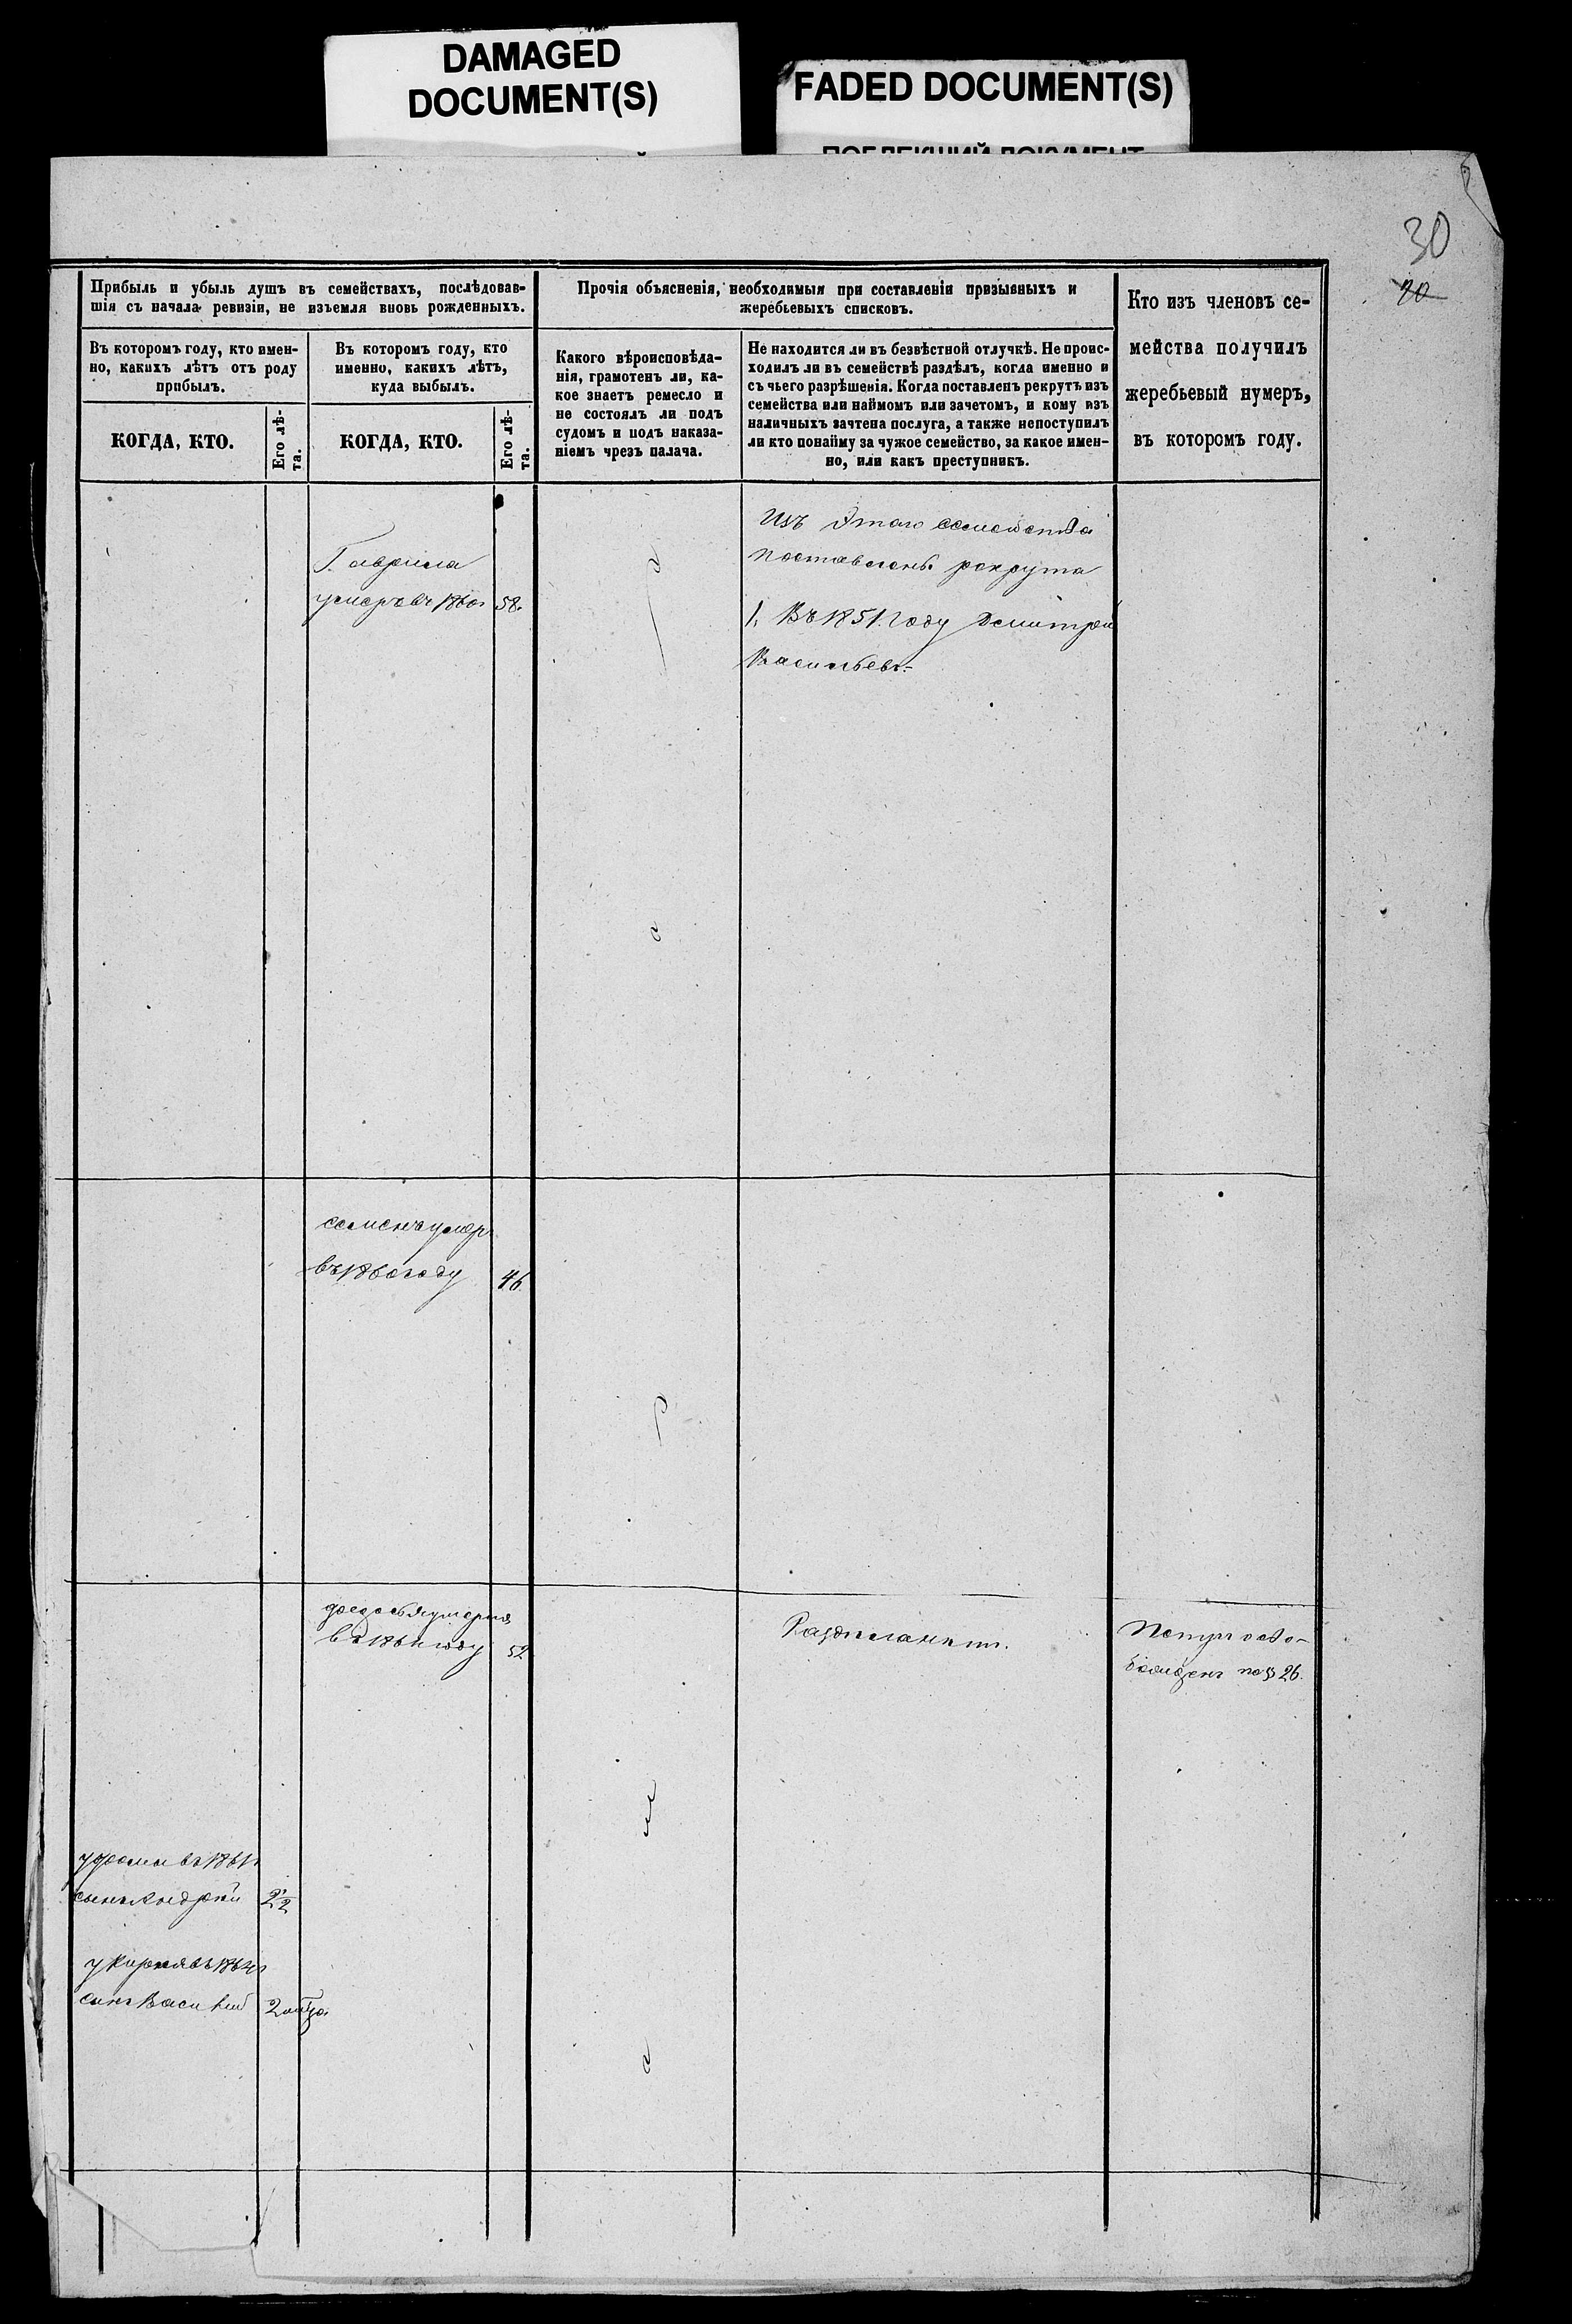 DAMAGED
DOCUMENT(S)
FADED DOCUMENT(S)
ПОБЛЕКШИЙ ДОКУМЕНТ
30
Прибыль и убыль душъ въ семействахъ, послѣдовав-
шія съ начала ревизіи, не изъемля вновь рожденныхъ.
Въ которомъ году, кто имен-
но, какихъ лѣтъ отъ роду
прибылъ.
КОГДА, КТО.
Его лѣ-
та.
Въ которомъ году, кто
именно, какихъ лѣтъ,
куда выбылъ.
КОГДА, КТО.
Его лѣ-
та.
Прочія объясненія, необходимыя при составленіи призывныхъ и
жеребьевыхъ списковъ.
Какого вѣроисповѣда-
нія, грамотенъ ли, ка-
кое знаетъ ремесло и
не состоялъ ли подъ
судомъ и подъ наказа-
ніемъ чрезъ палача.
Не находится ли въ безвѣстной отлучкѣ. Не проис-
ходилъ ли въ семействѣ раздѣлъ, когда именно и
съ чьего разрѣшенія. Когда поставленъ рекрутъ изъ
семейства или наймомъ или зачетомъ, и кому изъ
наличныхъ зачтена послуга, а также непоступилъ
ли кто понайму за чужое семейство, за какое имен-
но, или какъ преступникъ.
Кто изъ членовъ се-
мейства получилъ
жеребьевый нумеръ,
въ которомъ году.
Гаврила
умеръ въ 1860г 58.
Изъ этаго семейства
поставлены рекрута
1, Въ 1851 году Демитрій
Васильевъ.
семенъ умеръ
въ 1860 году 46.
въ году 52
Петръ осво-
божденъ по § 26.
сынъ Андрей 2½
сынъ Василий